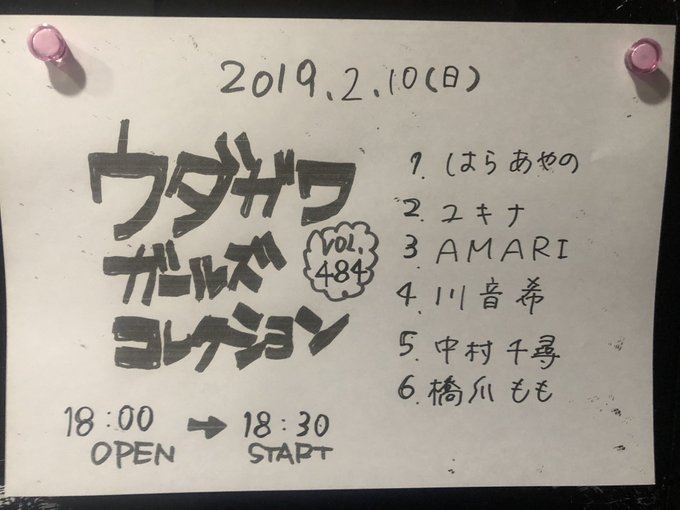 2019.2.10(日)
ウダガワ
ガールズ
コレクション
VOL.
484
1. しはらあやの
2. ユキナ
3 AMARI
4. 川音希
5. 中村千尋
6. 橋爪もも
18:00 → 18:30
OPEN START